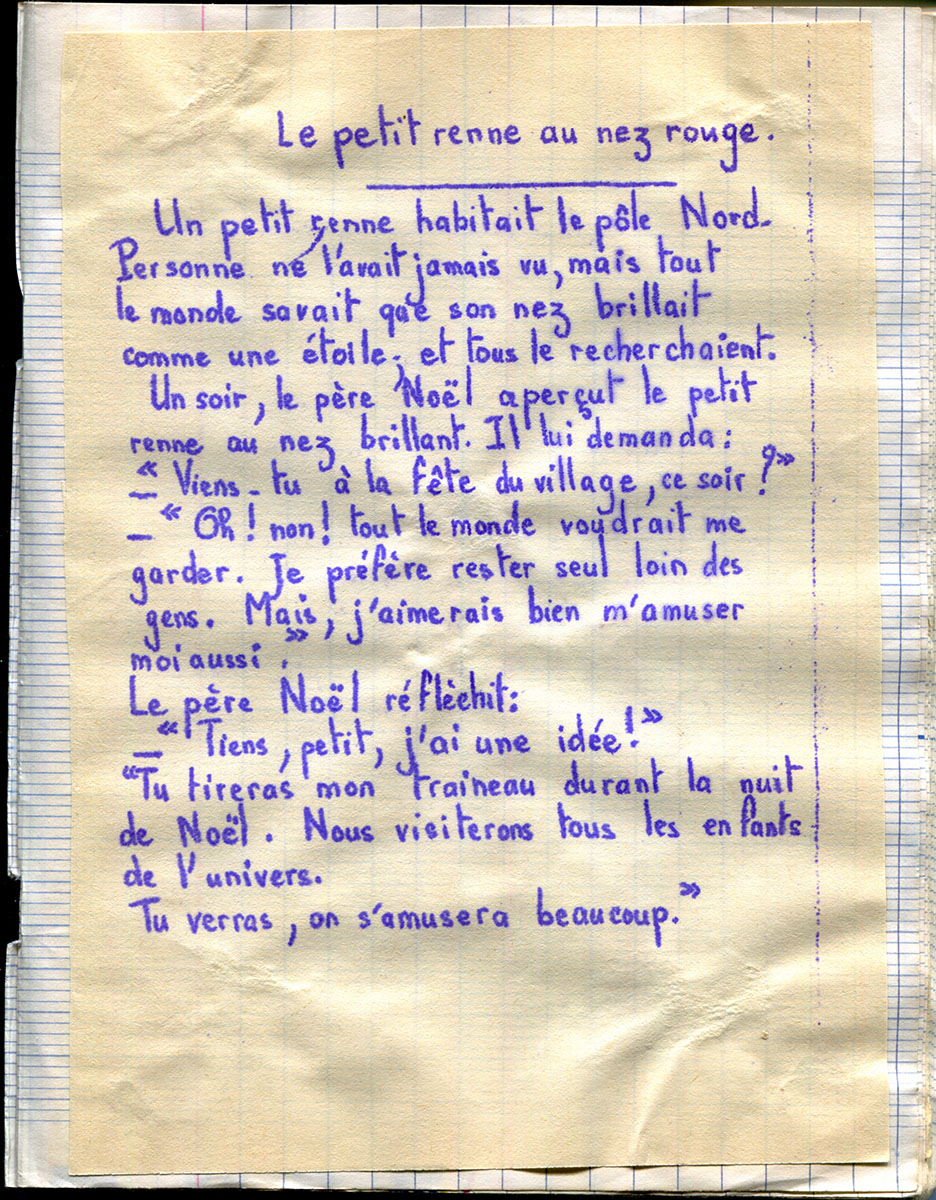 Le petit renne au nez rouge.
Un petit renne habitait le pôle Nord.
Personne ne l'avait jamais vu, mais tout
le monde savait que son nez brillait
comme une étoile, et tous le recherchaient.
Un soir, le père Noël aperçut le petit
renne au nez brillant. Il lui demanda :
_ " Viens-tu à la fête du village, ce soir ? "
_ " Oh ! non ! tout le monde voudrait me
garder. Je préfère rester seul loin des
gens. Mais, j'aimerais bien m'amuser
moi aussi . "
Le père Noël réflèchit :
_ " Tiens, petit, j'ai une idée ! "
" Tu tireras mon traîneau durant la nuit
de Noël. Nous visiterons tous les enfants
de l'univers.
Tu verras, on s'amusera beaucoup. "